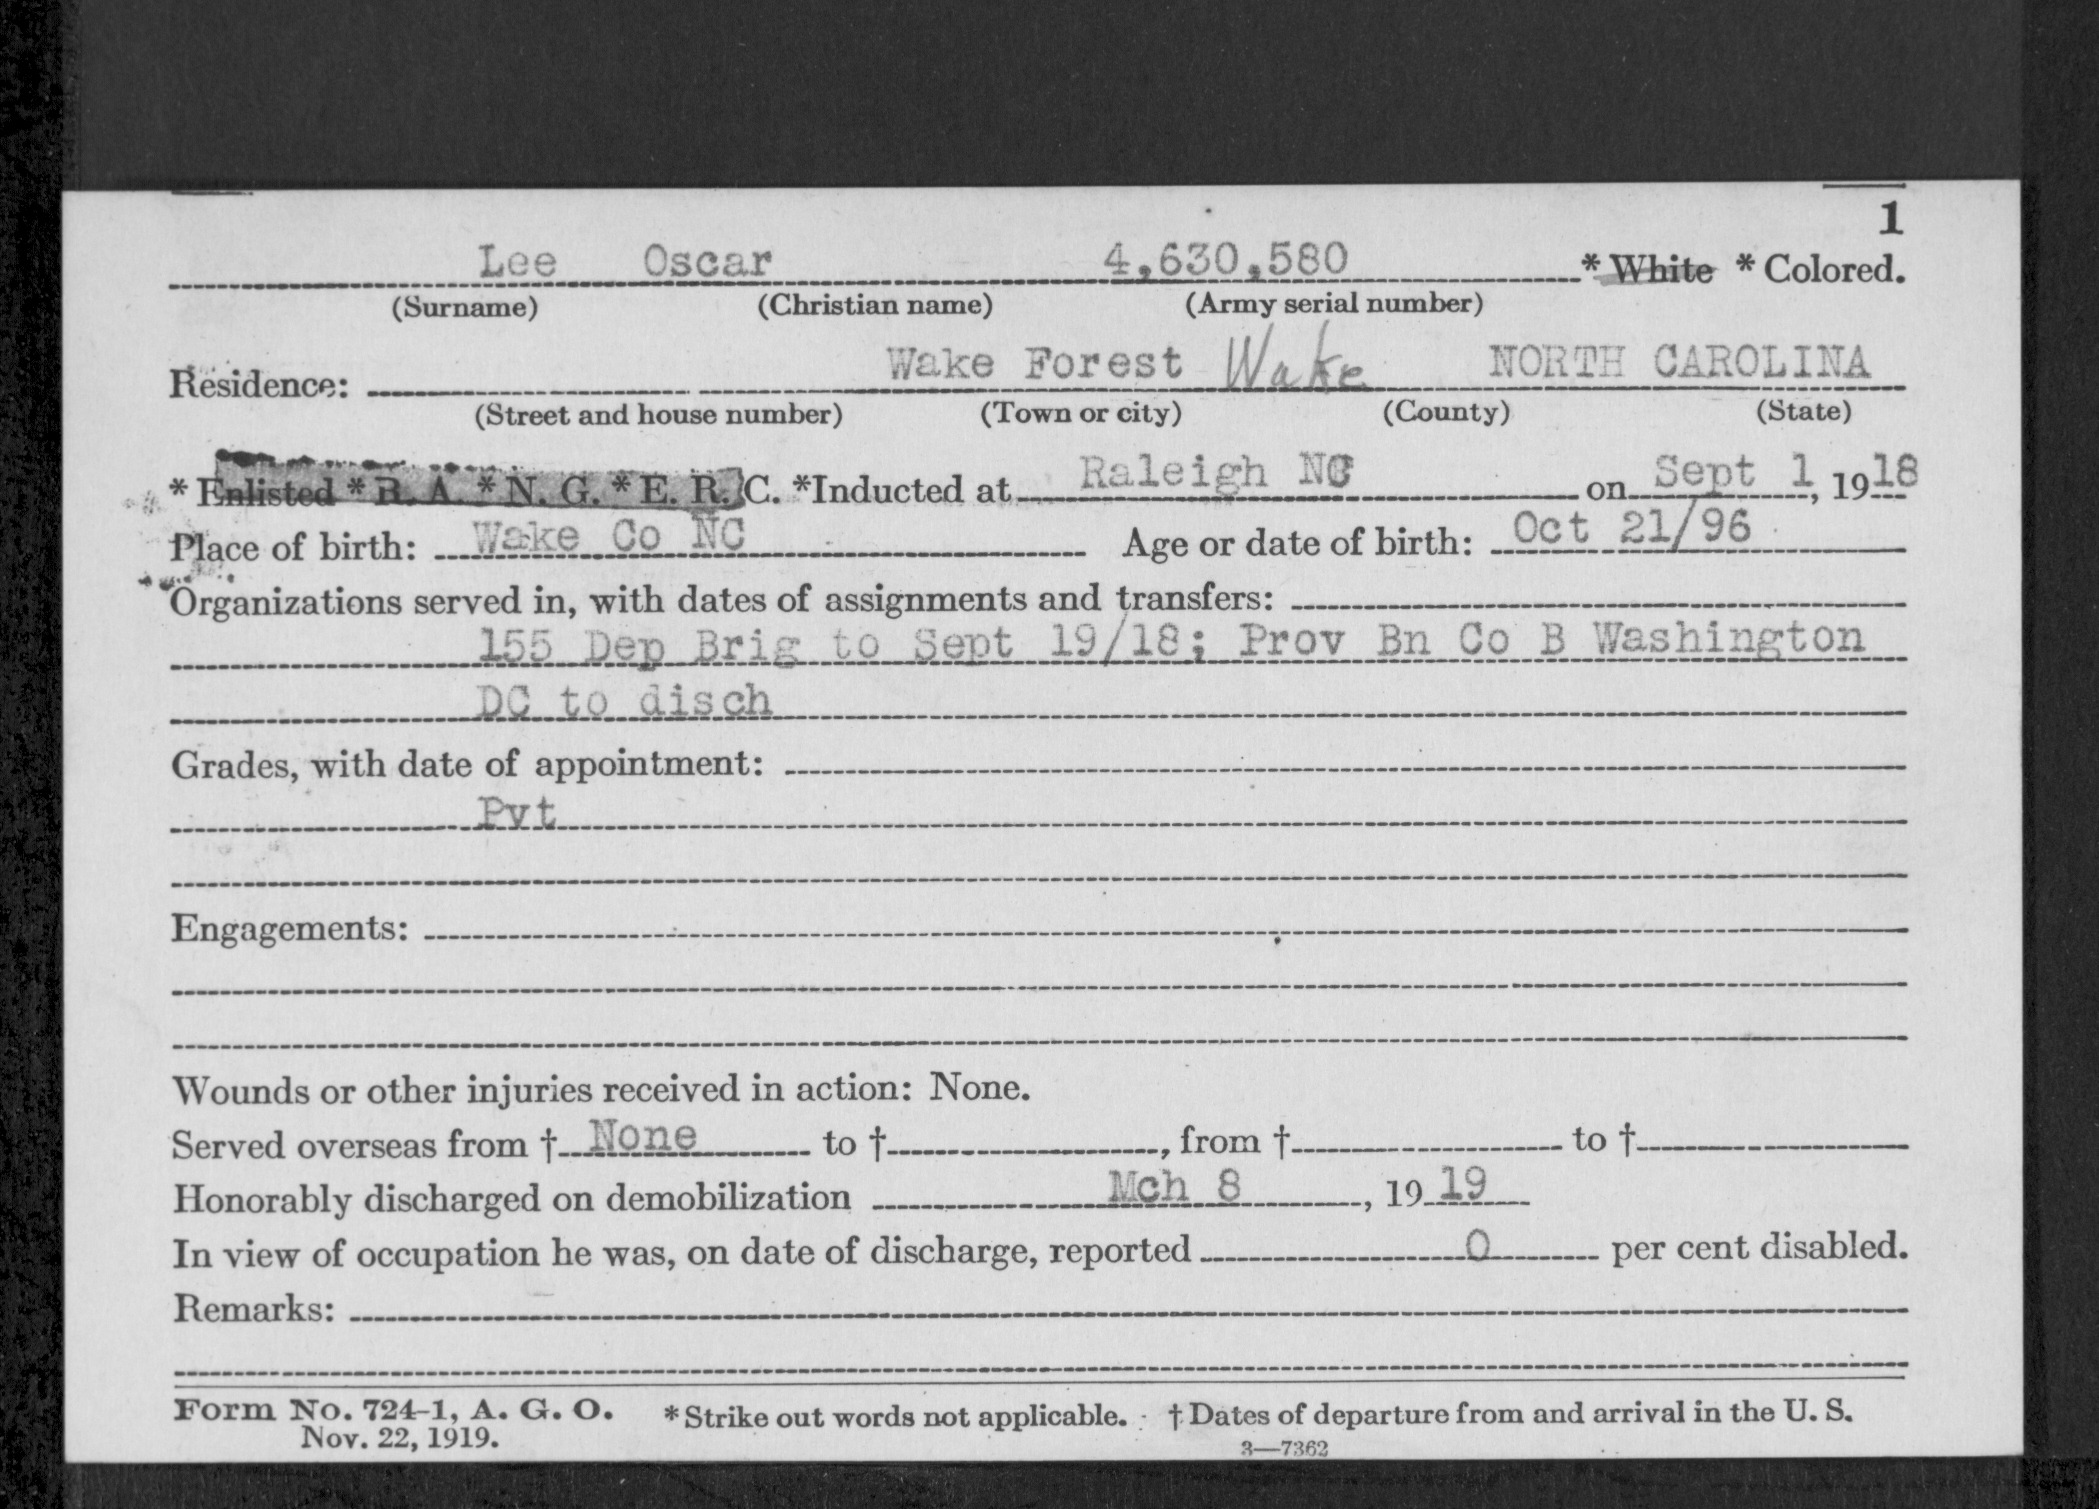 1
Lee Oscar 4,630,580 * White * Colored.
(Surname) (Christian name) (Army serial number)
Residence: Wake Forest Wake NORTH CAROLINA
(Street and house number) (Town or city) (County) (State)
* Enlisted * R. A. * N. G. * E. R. C. *Inducted at Raleigh NC on Sept 1, 1918
Place of birth: Wake Co NC Age or date of birth: Oct 21/96
Organizations served in, with dates of assignments and transfers:
155 Dep Brig to Sept 19/18; Prov Bn Co B Washington
DC to disch
Grades, with date of appointment:
Pvt
Engagements:
Wounds or other injuries received in action: None.
Served overseas from † None to †, from † to †
Honorably discharged on demobilization Mch 8, 1919
In view of occupation he was, on date of discharge, reported 0 per cent disabled.
Remarks:
Form No. 724-1, A. G. O. * Strike out words not applicable. † Dates of departure from and arrival in the U. S.
Nov. 22, 1919. 3—7362